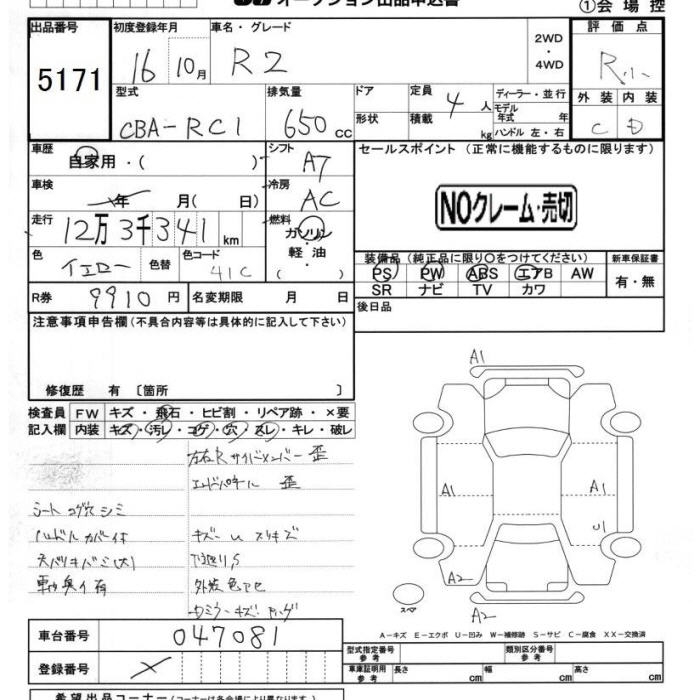 ①会場控
出品番号 初度登録年月 車名・グレード 評価点
5171 16 10月 R2 2WD・4WD R小
型式 排気量 ドア 定員 ディーラー・並行 外装 内装
CBA-RC1 650cc 4人 モデル年式 年 C D
形状 積載 kg ハンドル 左・右
車歴 自家用・( ) シフト AT セールスポイント(正常に機能するものに限ります)
車検 年 月( 日) 冷房 AC
NOクレーム・売切
走行 12万3千341km 燃料 ガソリン 軽・油 ( )
色 イエロー 色替 色コード 41C
装備品(純正品に限り○をつけてください) 新車保証書
PS PW ABS エアB AW 有・無
SR ナビ TV カワ
R券 9910円 名変期限 月 日 後日品
注意事項申告欄(不具合内容等は具体的に記入して下さい)
修復歴 有〔箇所 〕
検査員 FW キズ・飛石・ヒビ割・リペア跡・×要
記入欄 内装 キズ・汚レ・コゲ・穴・スレ・キレ・破レ
左右Rサイドメンバー歪
エンドパネル 歪
シート コゲ穴シミ
ハンドルカバー付 キズーUスリキズ
下廻りS
外装色アセ
A1
A1
A1
U1
A2
A2
スペア
A-キズ E-エクボ U-凹み W-補修跡 S-サビ C-腐食 XX-交換済
車台番号 047081
型式指定番号 参考 類別区分番号 参考
登録番号 車庫証明用 参考 長さ cm 幅 cm 高さ cm